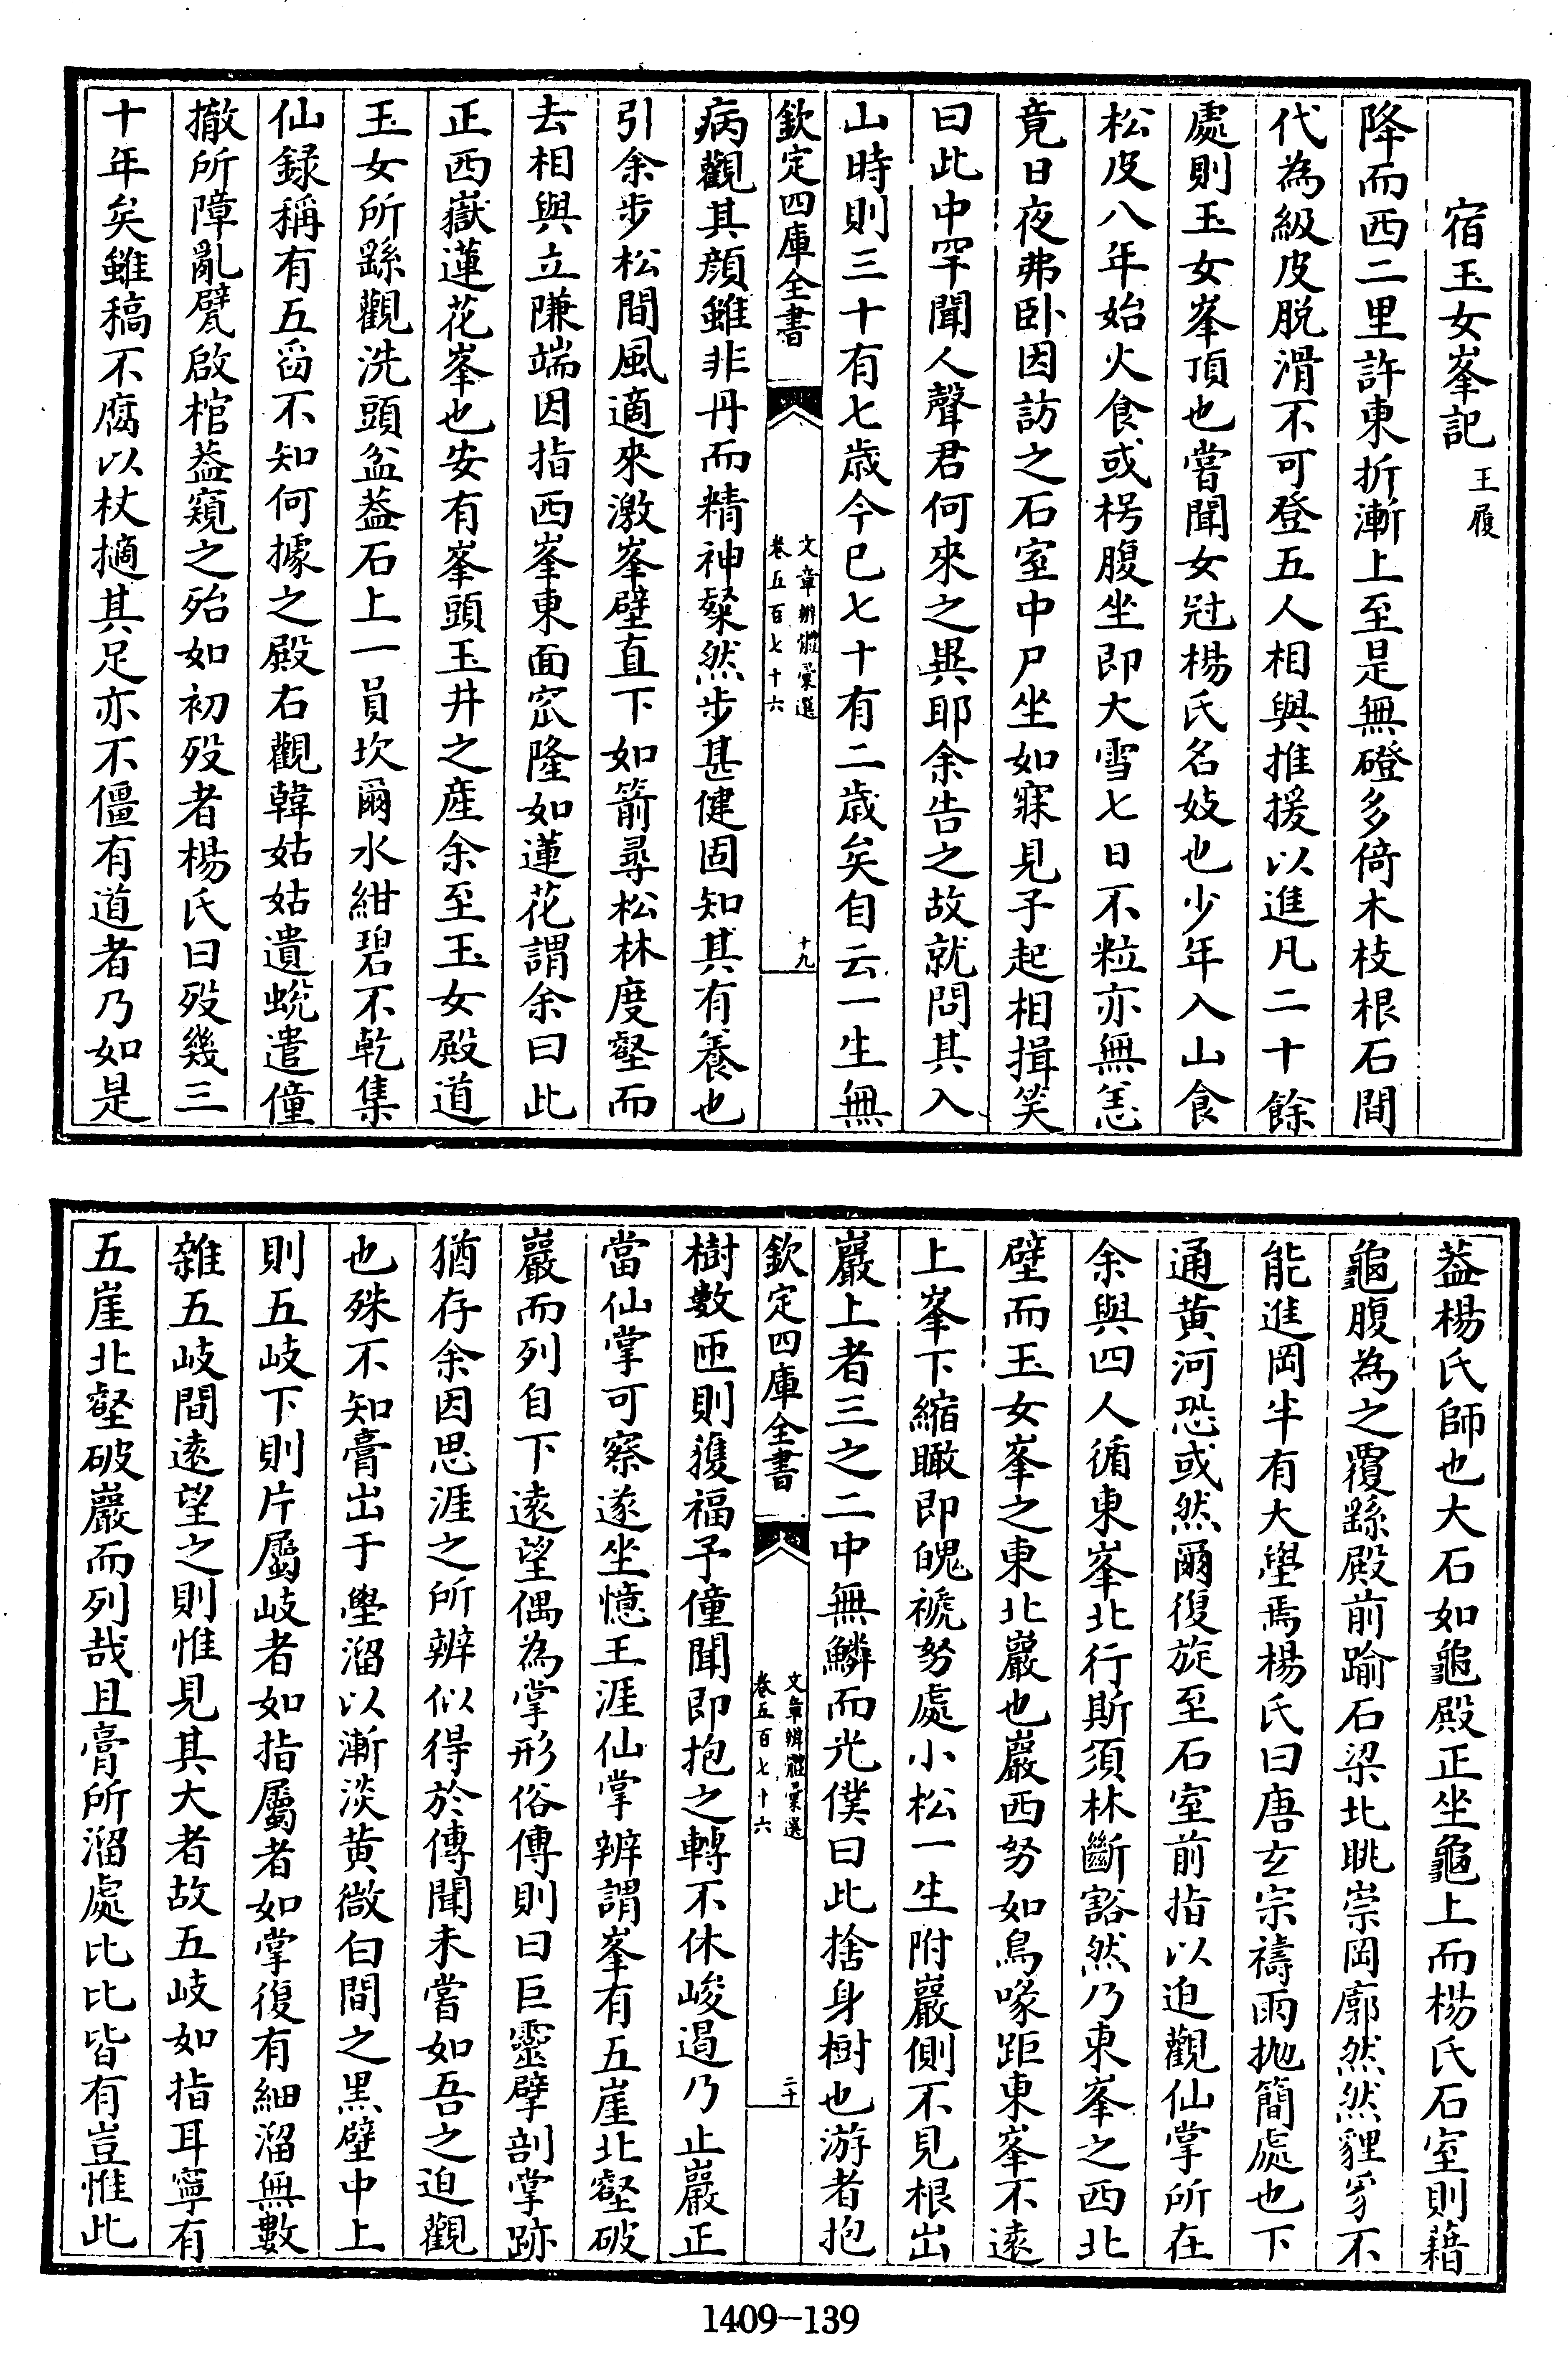 宿玉女峯記王履
降而西二里許東折漸上至是無磴多倚木枝根石間
代為級皮脱滑不可登五人相與推援以進凡二十餘
處則玉女峯頂也嘗聞女冠楊氏名妓也少年入山食
松皮八年始火食或枵腹坐即大雪七日不粒亦無恙
竟日夜弗卧因訪之石室中尸坐如寐見子起相揖笑
曰此中罕聞人聲君何來之異耶余告之故就問其入
山時則三十有七歲今已七十有二歲矣自云一生無
欽定四庫全書
文章辨體彙選
卷五百七十六
十九
病觀其顔雖非丹而精神粲然步甚健固知其有養也
引余步松間風適來激峯壁直下如箭尋松林度壑而
去相與立隒端因指西峯東面窊隆如蓮花謂余曰此
正西嶽蓮花峯也安有峯頭玉井之產余至玉女殿道
玉女所繇觀洗頭盆葢石上一員坎爾水紺碧不乾集
仙録稱有五臼不知何據之殿右觀韓姑姑遺蛻遣僮
撤所障亂甓啟棺葢窺之殆如初歿者楊氏曰歿幾三
十年矣雖稿不腐以杖擿其足亦不僵有道者乃如是
葢楊氏師也大石如龜殿正坐龜上而楊氏石室則藉
龜腹為之覆繇殿前踰石梁北眺崇岡廓然然貍豸不
能進岡半有大壆焉楊氏曰唐玄宗禱雨抛簡處也下
通黄河恐或然爾復旋至石室前指以迫觀仙掌所在
余與四人循東峯北行斯須林斷豁然乃東峯之西北
壁而玉女峯之東北巖也巖西努如鳥喙距東峯不遠
上峯下縮瞰即魄褫努處小松一生附巖側不見根出
巖上者三之二中無鱗而光僕曰此捨身樹也游者抱
欽定四庫全書
文章辨體彙選
卷五百七十六
二十
樹數匝則獲福予僮聞即抱之轉不休峻遏乃止巖正
當仙掌可察遂坐憶王涯仙掌辨謂峯有五崖北壑破
巖而列自下遠望偶為掌形俗傳則曰巨靈擘剖掌跡
猶存余因思涯之所辨似得於傳聞未嘗如吾之迫觀
也殊不知膏出于壆溜以漸淡黄微白間之黒壁中上
則五岐下則片屬岐者如指屬者如掌復有細溜無數
雜五岐間遠望之則惟見其大者故五岐如指耳寧有
五崖北壑破巖而列哉且膏所溜處比比皆有豈惟此
1409-139